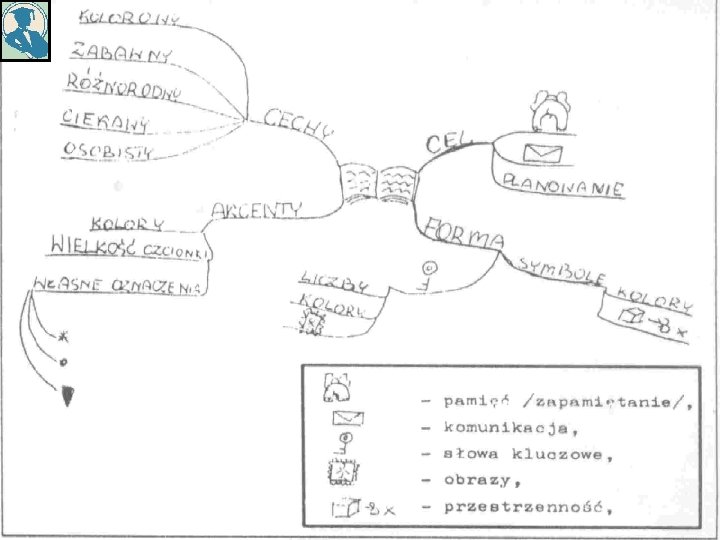 KOLOROWY
ZABAWNY
RÓŻNORODNY
CIEKAWY
OSOBISTY
CECHY
AKCENTY
KOLORY
WIELKOŚĆ CZCIONKI
WŁASNE OZNACZENIA
CEL
PLANOWANIE
FORMA
SYMBOLE
KOLORY
LICZBY
KOLORY
- pamięć /zapamiętanie/,
- komunikacja,
- słowa kluczowe,
- obrazy,
- przestrzenność,